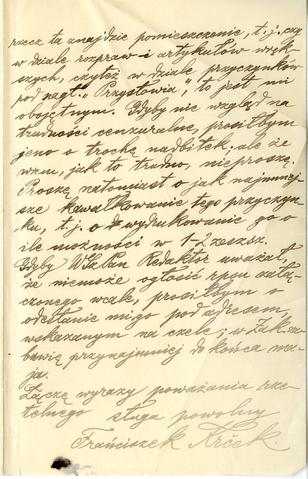 rzecz ta znajdzie pomieszczenie, t. j. czy
w dziale rozpraw i artykułów więk-
szych, czyteż w dziale przyczynków
pod nagł. „Przysłowia”, to jest mi
obojętnym. Gdyby nie wzgląd na
trudności cenzuralne, prosiłbym
jeno o trochę nadbitek, ale że
wiem, jak to trudno, nie proszę.
Proszę natomiast o jak najmniej
sze kawałkowanie tego przyczyn-
ku, t. j. o wydrukowanie go o
ile możności w 1-2 zesz.
Gdyby WPan Redaktor uważał,
że niemoże ogłosić rpsu załą-
czonego wcale, prosiłbym o
odesłanie mi go pod adresem,
wskazanym na czele; w Zak.
bawię przynajmniej do końca ma-
ja.
Łączę wyrazy poważania rze-
telnego sługa powolny
Franciszek Krček.